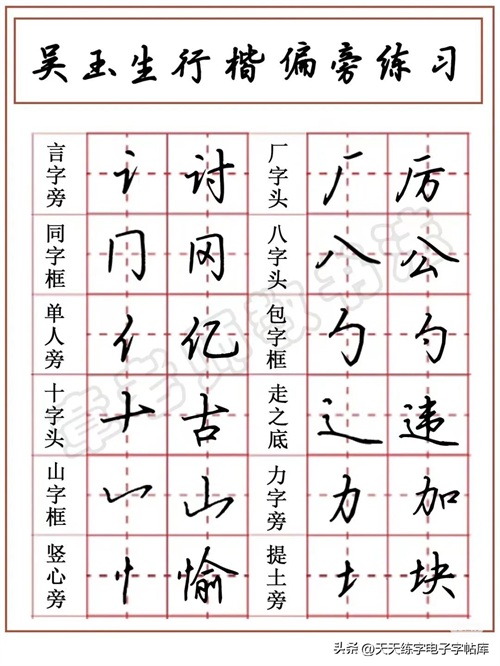 吴玉生行楷偏旁练习
言字旁 讠 讨 厂字头 厂 厉
同字框 冂 冈 八字头 八 公
单人旁 亻 亿 包字框 勹 勺
十字头 十 古 走之底 辶 违
山字框 山 力字旁 力 加
竖心旁 忄 愉 提土旁 土 块
头条 @天天练字电子字帖库